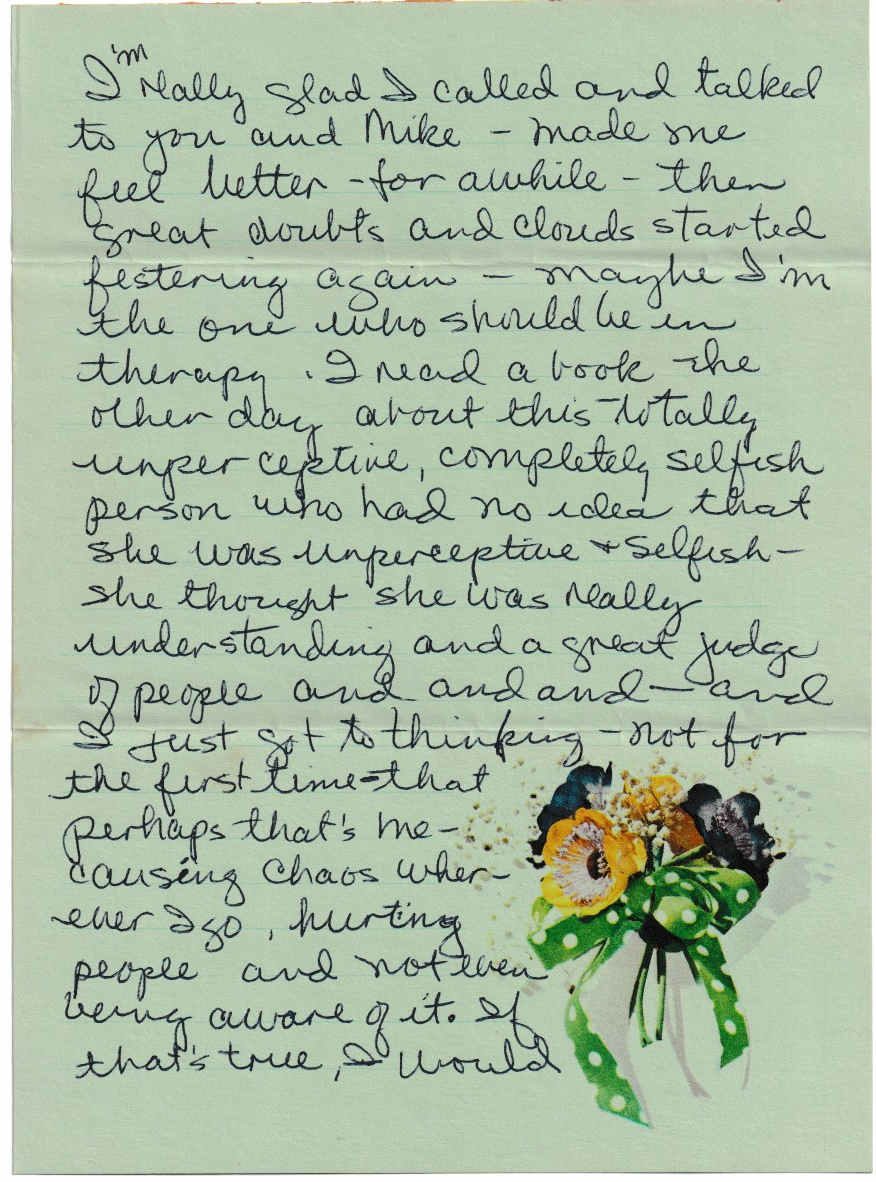 I'm really glad I called and talked
to you and Mike - made me
feel better - for awhile - then
great doubts and clouds started
festering again - maybe I'm
the one who should be in
therapy. I read a book the
other day about this totally
unperceptive, completely selfish
person who had no idea that
she was unperceptive + selfish -
she thought she was really
understanding and a great judge
of people and and and - and
I just got to thinking - not for
the first time - that
perhaps that's me -
causing chaos wher-
ever I go, hurting
people and not even
being aware of it. If
that's true, I would